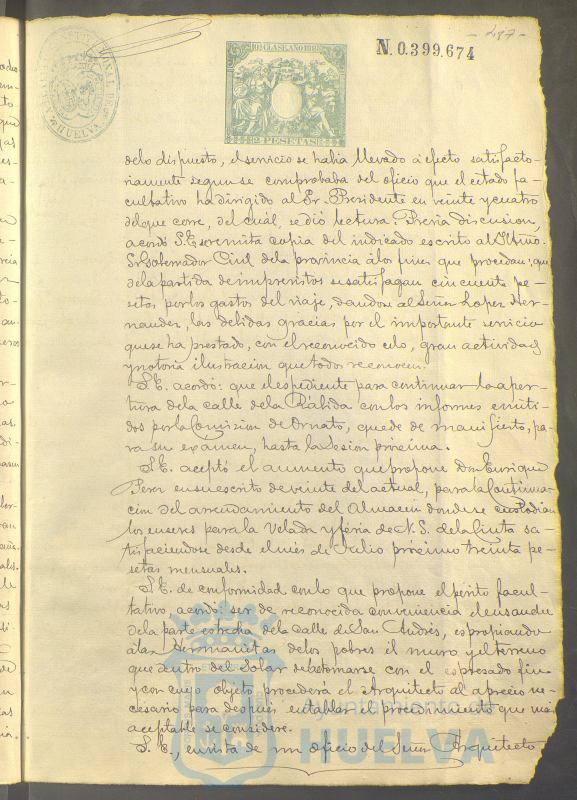 - 237 -
N. 0.399.674
10ª CLASE AÑO 1889
2 PESETAS
CONSTITUCIONAL
HUELVA
delo dispuesto, el servicio se habia llevado á efecto satisfacto-
riamente segun se comprobaba del oficio que el citado fa-
cultativo ha dirigido al Sr. Presidente en veinte y cuatro
del que corre, del cuál, se dió lectura. Previa discusion,
acordó S.E. se remita copia del indicado escrito al Iltmo.
Sr. Gobernador Civil dela provincia álos fines que procedan; que
dela partida de imprevistos se satisfagan cincuenta pe-
setas, por los gastos del viaje, dandose al Señor Lopez Her-
nandez, las debidas gracias por el importante servicio
que se ha prestado, con el reconocido celo, gran actividad
y notoria ilustracion que todos reconocen.
S.E. acordó: que el espediente para continuar la aper-
tura dela calle dela Rábida con los informes emiti-
dos por la Comision de Ornato, quede de manifiesto, pa-
ra su exámen, hasta la sesion próxima.
S.E. aceptó el aumento que propone Don Enrique
Perez en su escrito de veinte del actual, para la Continua-
cion del arrendamiento del Almacen donde se custodian
los enseres para la Velada y féria de N. S. dela Cinta sa-
tisfaciendose desde el mes de Julio próximo treinta pe-
setas mensuales.
S.E. de conformidad con lo que propone el périto facul-
tativo, acordó: ser de reconocida conveniencia el ensanche
dela parte estrecha dela calle de San Andrés, espropiando
álas Hermanitas delos pobres el muro y el terreno
que dentro del Solar debe tomarse con el espresado fin
y con cuyo objeto procederá el Arquitecto al aprecio ne-
cesario para despues entablar el procedimiento que mas
aceptable se considere.
S. E., en vista de un oficio del Señor Arquitecto
Ayuntamiento de
HUELVA